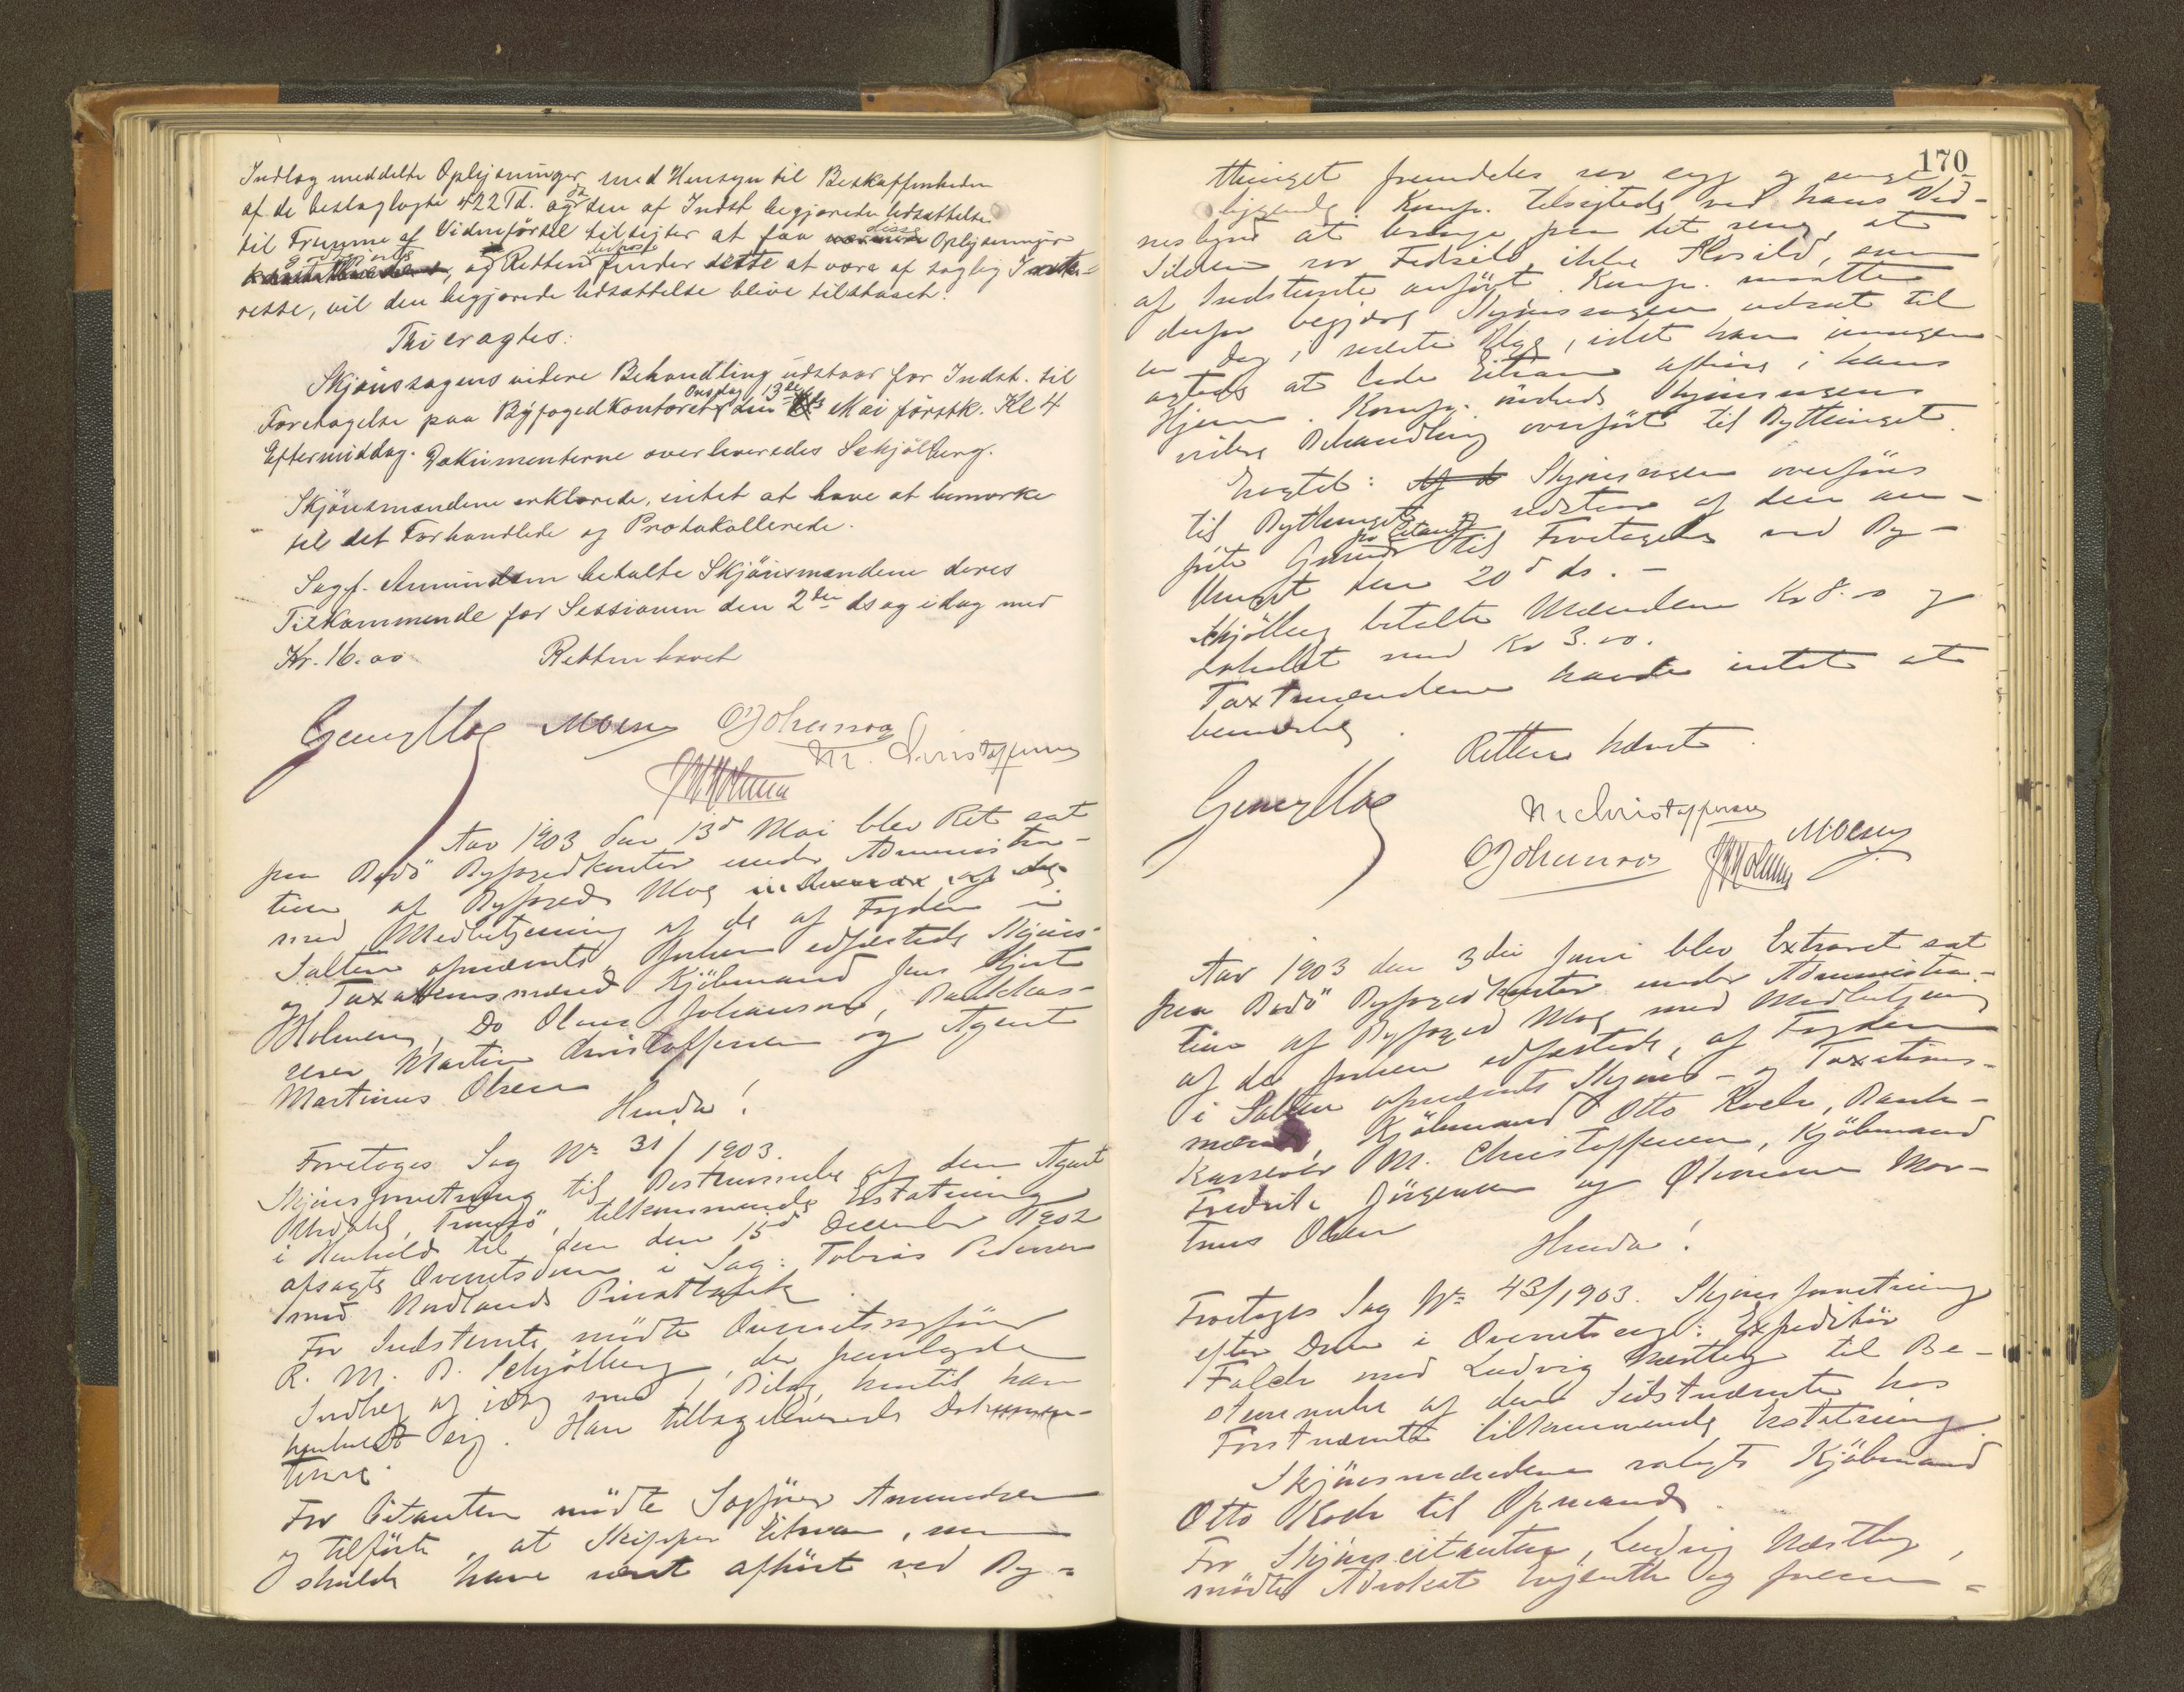 Indlæg meddelte Oplysninger med Hensyn til Beskaffenheden
af de beslaglagte 422 Td. og da den af Indst. begjærede Udsættelse
til Fremme af Vidneførsel tilsigter at faa disse Oplysninger
, og Retten finder dette at være af saglig Inte-
resse, vil den begjærede Udsættelse blive tilstaaet.
Thi eragtes:
Skjønssagens videre Behandling udstaar for Indst. til
Foretagelse paa Byfogedkontoret Onsdag den 13de Mai førstk. Kl 4
Eftermiddag. Dokumenterne overleveredes Schjølberg.
Skjønsmændene erklærede, intet at have at bemærke
til det Forhandlede og Protokollerede.
Sagf. Amundsen betalte Skjønsmændene deres
Tilkommende for Sessionen den 2den ds og idag med
Kr. 16.00 Retten hævet
Georg Moe MOlsen OJohansen
M. Christoffersen
Aar 1903 den 13d Mai blev Ret sat
paa Bodö Byfogedkontor under Administra-
tion af Byfoged Moe
med Medbetjening af de af Fogden i
Salten opnævnte, forhen edfæstede Skjøns-
og Taxationsmænd Kjöbmand Jens Hjort
Holmen, Do Olaus Johansen, Bankkas-
serer Martin Christoffersen og Agent
Martinus Olsen
Hvorda!
Foretoges Sag No 31/1903.
Skjönsforretning til Bestemmelse af den Agent
Tromsö, tilkommende Erstatning
i Henhold til den den 15d December 1902
afsagte Overretsdom i Sag: Tobias Pedersen
mod Nordlands Privatbank.
For Indstevnte mödte Overretssagförer
R. M. B. Schjölberg, der fremlagde
Indlæg af idag med 1 Bilag, hvortil han
henholdt sig. Han tilbageleverede Dokumen-
terne.
For Citanten mödte Sagförer Amundsen
og tilförte, at Skipper Eitran, som
skulde have været afhört ved By-
170
thinget fremdeles var syg og senge-
liggende. Komp. tilsigtede ved hans Vid-
nesbyrd at bringe paa det rene, at
Silden var Fedsild, ikke Slosild, som
af Indstevnte anført. Komp. maatte
derfor begjære Skjönssagen udsat til
en Dag i næste Uge, idet han imidlertid
agtede at lade Eitran afhöre i hans
Hjem. Komp. önskede Skjönssagens
videre Behandling overfört til Bythinget.
Eragtet: Skjönssagen overføres
til Bythinget og udstaar af den an-
förte Grund for Citanten til Foretagelse ved By-
thinget den 20d ds. -
Schjölberg betalte Mændene Kr 8.00 og
Lokalet med Kr 3.00.
Taxtmændene havde intet at
bemærke.
Retten hævet.
Georg Moe
M. Christoffersen
OJohansen MOlsen
Aar 1903 den 3die Juni blev Extraret sat
paa Bodö Byfogedkontor under Administra-
tion af Byfoged Moe med Medbetjening
af de forhen edfæstede, af Fogden
i Salten opnævnte Skjøns- og Taxations-
mænd, Kjöbmand Otto Koch, Bank-
kasserer M. Christoffersen, Kjöbmand
Fredrik Jörgensen og Mar-
tinus Olsen
Hvorda!
Foretoges Sag No 43/1903. Skjönsforretning
efter Dom i Overretssag: Expeditör
Falch mod Ludvig Næstby til Be-
stemmelse af den Sidstnævnte hos
Førstnævnte tilkommende Erstatning.
Skjönsmændene valgte Kjöbmand
Otto Koch til Opmand.
For Skjönscitanten, Ludvig Næstby,
mødte Advokat Evjenth og frem-